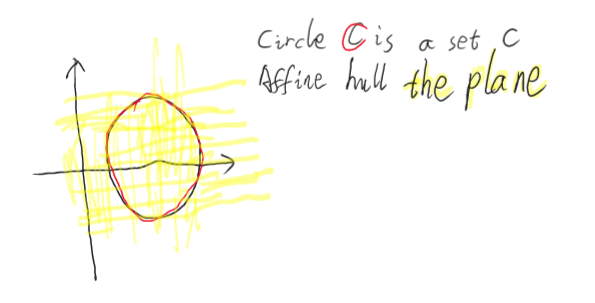 Circle C is a set C
Affine hull the plane